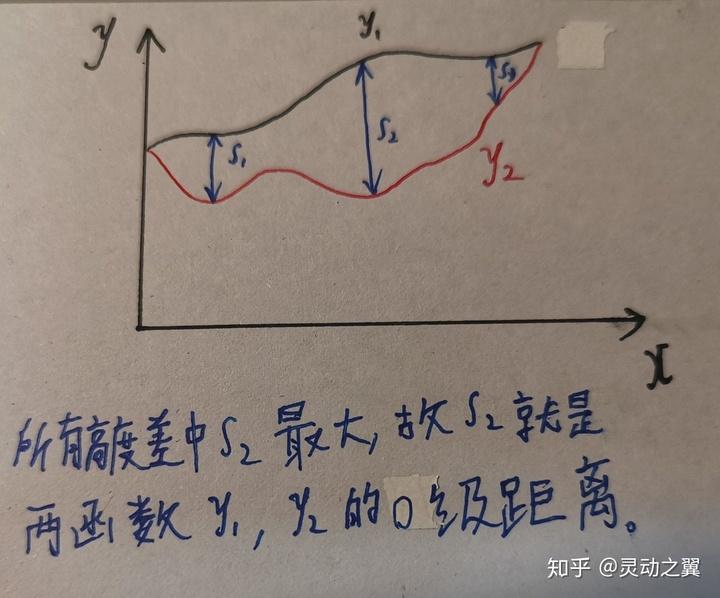 y
y₁
S₁
S₂
S₃
y₂
x
所有高度差中S₂最大,故S₂就是
两函数y₁,y₂的0级距离。
知乎 @灵动之翼